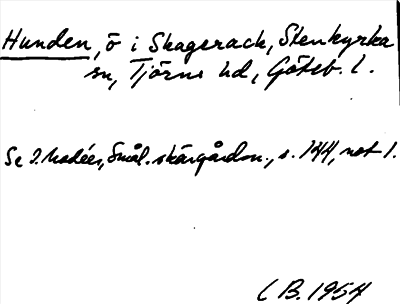 Hunden, ö i Skagerack, Stenkyrka
sn, Tjörns hd, Göteb. l.
Se I. Modéer, Smål. skärgårdsn., s. 144, not 1.
C B. 1954